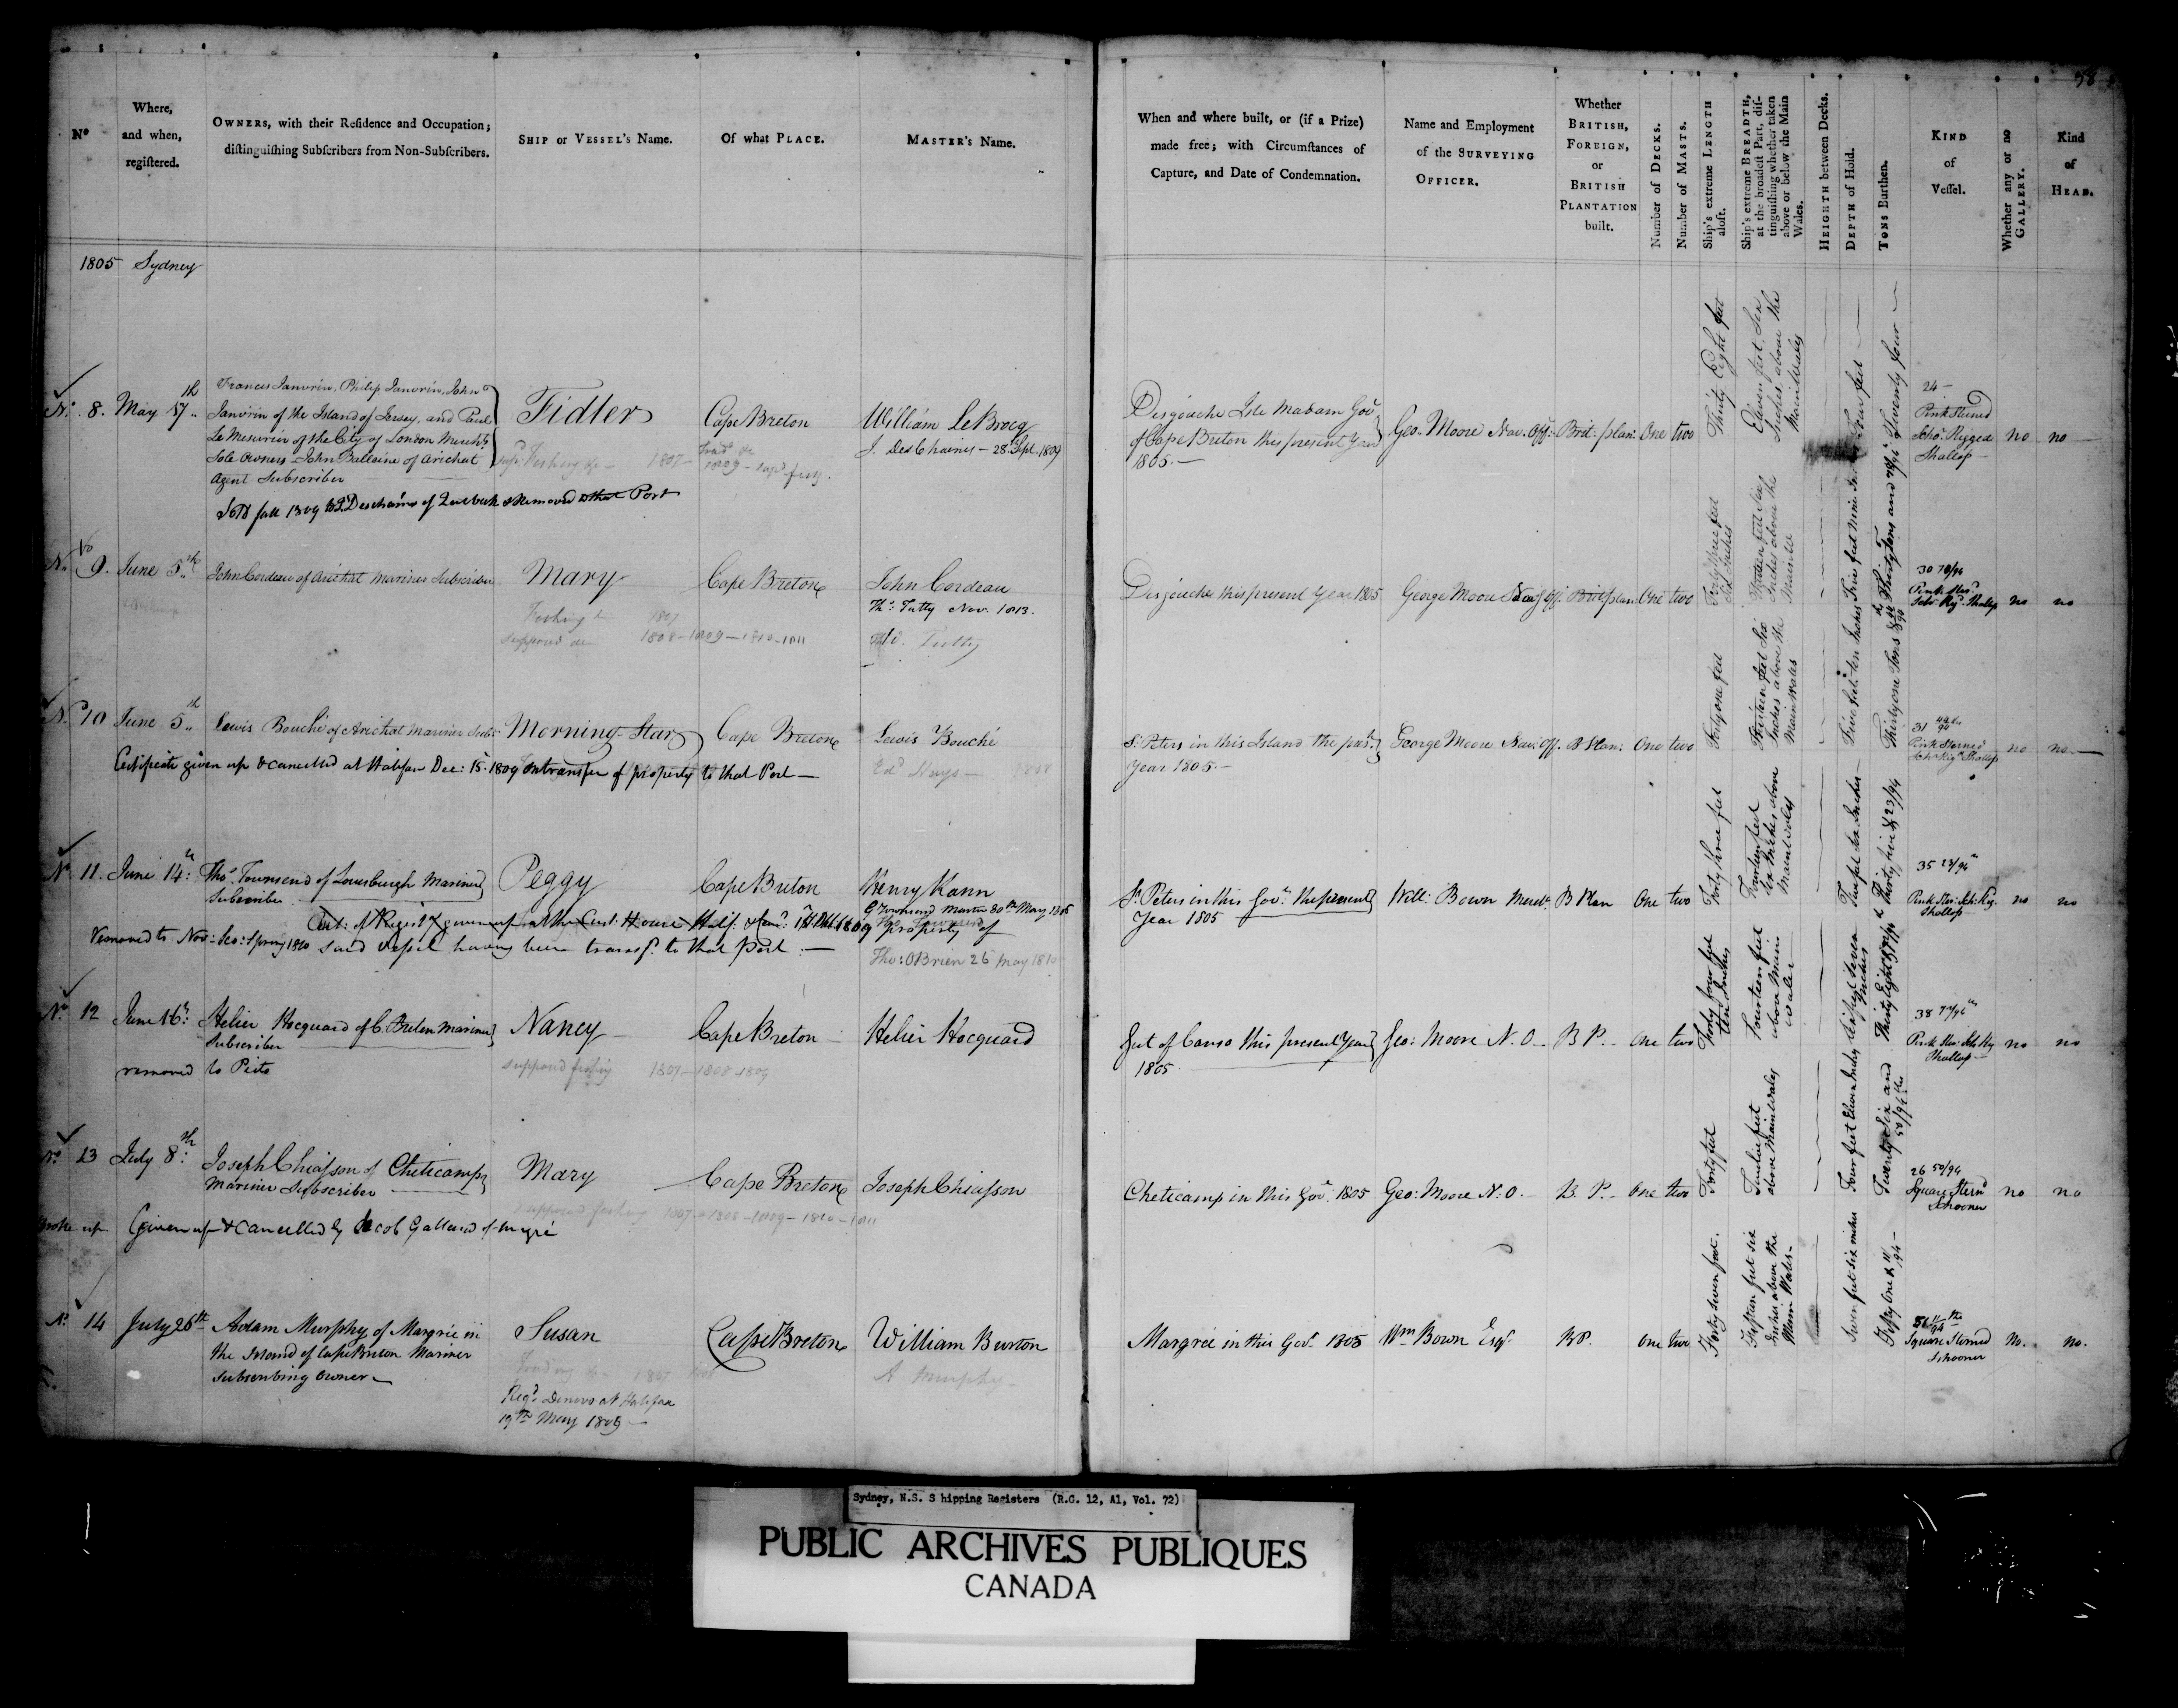 58
No
Where,
and when,
registered.
OWNERS, with their Residence and Occupation;
distinguishing Subscribers from Non-Subscribers.
SHIP or VESSEL's Name.
Of what PLACE.
MASTER's Name.
When and where built, or (if a Prize)
made free; with Circumstances of
Capture, and Date of Condemnation.
Name and Employment
of the SURVEYING
OFFICER.
Whether
BRITISH,
FOREIGN,
or
BRITISH
PLANTATION
built.
Number of DECKS.
Number of MASTS.
Ship's extreme LENGTH
aloft.
Ship's extreme BREADTH,
at the broadest Part, dis-
tinguishing whether taken
above or below the Main
Wales.
HEIGHTH between Decks.
DEPTH of Hold.
TONS Burthen.
KIND
of
Vessel.
Whether any or no
GALLERY.
Kind
of
HEAD.
1805 Sydney
No. 8. May 17th
Frances Janvrin, Philip Janvrin, John
Janvrin of the Island of Jersey, and Paul
Le Mesurier of the City of London Merchts
Sole Owners - John Ballaine of Arichat
Agent Subscriber
Fidler
Cape Breton
William LeBrocq
J. DesChaines - 28 Sept. 1809
Sold fall 1809 to J. Deschaines of Quebeck & Removed to that Port
Desgouche Isle Madam Govt
of Cape Breton this present Year
1805. -
Geo. Moore Nav. Off:
Brit: plan:
One two
Thirty Eight feet
Eleven feet Six
Inches above the
Main Wales
Four feet
Twenty four
24 -
Pink Sterned
Scho. Rigged
Shallop
no no
No 9. June 5th
John Cordeau of Arichat Mariner Subscriber
Mary
Fishing 1807
supposed do 1808 - 1809 - 1810 - 1811
Cape Breton
John Cordeau
Ths. Tutty Nov. 1813.
Tutty
Desgouche this present Year 1805
George Moore Nav. Off.
Brit plan:
One two
30 78/94
Pink Ster.
Scho. Rig. Shallop
no no
No 10 June 5th
Lewis Bouché of Arichat Mariner Subs
Morning Star
Cape Breton
Lewis Bouché
Ed. Hays - 1808
Certificate given up & cancelled at Halifax Dec: 15. 1809 on transfer of property to that Port -
St. Peters in this Island the prest.
Year 1805. -
George Moore Nav. Off.
B Plan:
One two
Forty one feet
Thirteen feet Six
Inches above the
Main Wales
Five feet ten Inches
31
Pink Sterned
Scho. Rigd. Shallop
no no
No 11. June 14th:
Thos. Townsend of Louisburgh Mariner
Subscriber
Peggy
Cape Breton
Henry Kann
G Townsend Master 30th May 1806
Cert: of Regist. given up at the Cust: House Halif: 1809 property of
Removed to Nov: Sco: Spring 1810 said vessel having been transf. to that port: -
Tho: OBrien 26 May 1810
St. Peters in this Govt. the present
Year 1805
Will: Bown Mercht.
B Plan
One two
Forty three feet
Fourteen feet
Six Inches above
Main Wales
Thirty five & 23/94
35 23/94ths
Pink Ster: Scho: Rig.
Shallop
no no
No 12 June 16th:
Helier Hocquard of C. Breton Mariner
Subscriber
removed to Picto
Nancy
supposed fishing 1807 - 1808 - 1809
Cape Breton
Helier Hocquard
Gut of Canso this present Year
1805
Geo: Moore N. O.
B P.
One two
Forty four feet
ten Inches
Fourteen feet
above Main
Wales
38 77/94ths
Pink Ster. Scho Rig
Shallop
no no
No. 13 July 8th:
Joseph Chiasson of Cheticamp
Mariner Subscriber
Mary
supposed fishing 1807 - 1808 - 1809 - 1810 - 1811
Cape Breton
Joseph Chiasson
Broke up Given up & Cancelled by Jacob Galland of Magré
Cheticamp in this Govt. 1805
Geo: Moore N. O.
B. P.
One two
Forty feet
Twelve feet
above Main Wales
Four feet Eleven Inches
Twenty Six and
50/94ths
26 50/94
Square Stern'd
Schooner
no no
No. 14 July 26th
Adam Murphy of Margrie in
the Island of Cape Breton Mariner
Subscribing Owner -
Susan
Cape Breton
William Burton
A Murphy
Regd. Denovo at Halifax
19th May 1809 -
Margrie in this Govt. 1805
Wm Bown Esqr.
B P.
One two
Forty seven feet.
Fifteen feet six
Inches above the
Main Wales -
Seven feet six inches
Fifty One & 11/94 -
51 11/94ths
Square Sterned
Schooner
No. no.
Sydney, N.S. S hipping Registers (R.G. 12, A1, Vol. 72)
PUBLIC ARCHIVES PUBLIQUES
CANADA